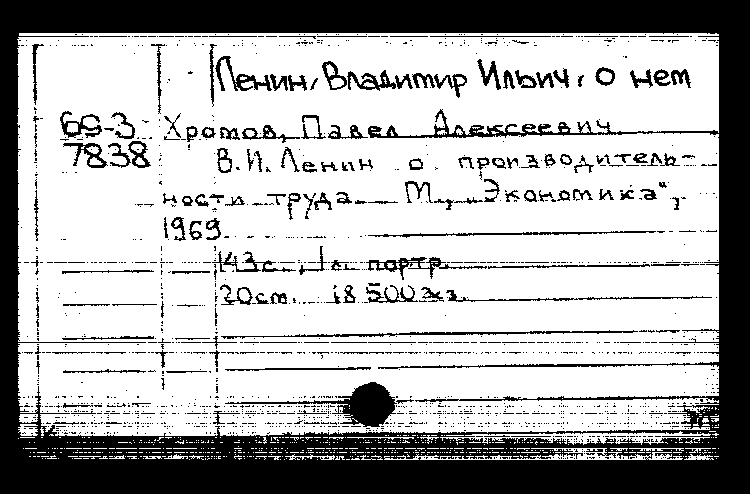 Ленин, Владимир Ильич, о нем
69-3 Хромов, Павел Алексеевич.
7838 В.И. Ленин о производитель-
ности труда. М., „Экономика",
1969.
143 с., 1 л. портр.
20 см. 18 500 экз.